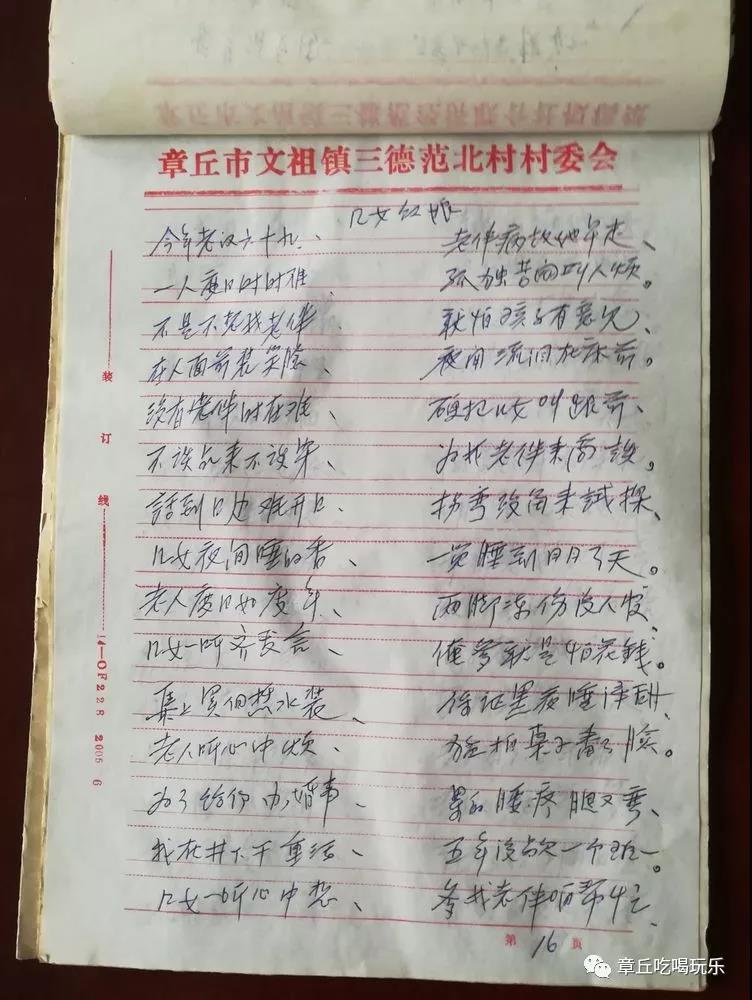 章丘市文祖镇三德范北村村委会
儿女红娘
今年老汉六十九、 老伴病故她早走、
一人度日时时难 孤独苦闷叫人烦。
不是不想找老伴 就怕孩子有意见、
在人面前装笑脸、 夜间流泪在床前。
没有老伴时在难、 硬把儿女叫跟前、
不谈 来不谈 、 为找老伴来商谈。
話到口边难开口、 拐弯 角来試探、
儿女夜间睡的香、 一觉睡到日月了天。
老人度日如度年、 两脚冻伤没人 、
儿女一听齐发言、 俺爹就是怕花錢。
集上買個热水装、 保证黑夜睡 甜、
老人听心中烦、 拍桌子番了脸。
为了给你办婚事、 累的腰疼腿又弯、
我在井下干重活、 五年没欠一个班。
儿女一听心中想、 爹找老伴咱帮忙、
装
订
线
14—OF228 2005 6
第 16 页
章丘吃喝玩乐